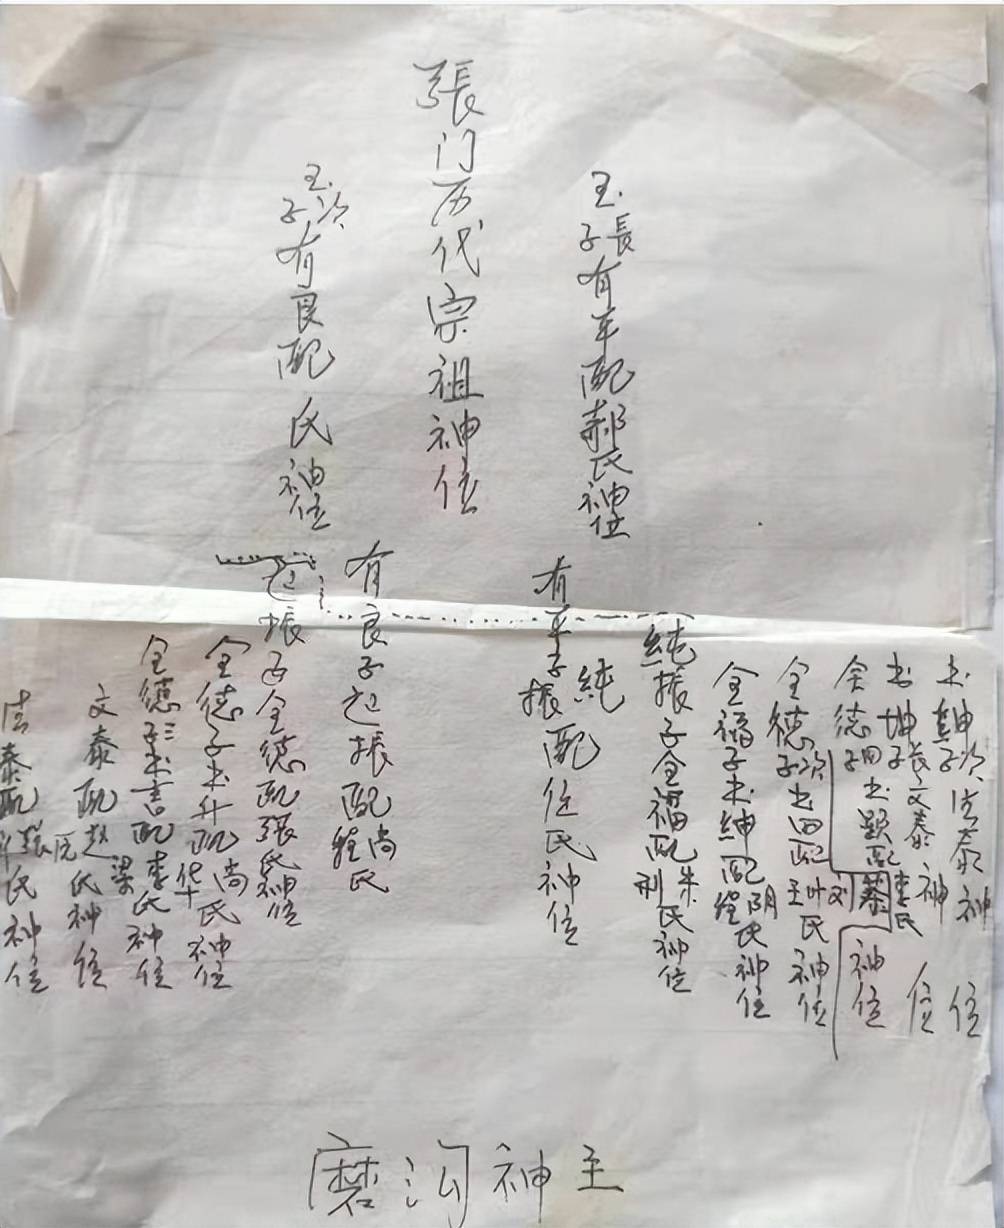 張门历代宗祖神位
玉長子有车配郝氏神位
玉次子有良配 氏神位
有子純振配任氏神位
純振子全福配朱刑氏神位
全福子书绅配阴程氏神位
全德次子书田配叶王刘氏神位
全德子书题配李氏神位
书坤長子文泰神位
书子次法泰神位
有良子起振配尚程氏
起振子全德配張氏神位
全德子书升配尚华氏神位
全德三子书言配李梁氏神位
文泰配赵阮氏神位
法泰配張氏神位
磨沟神主